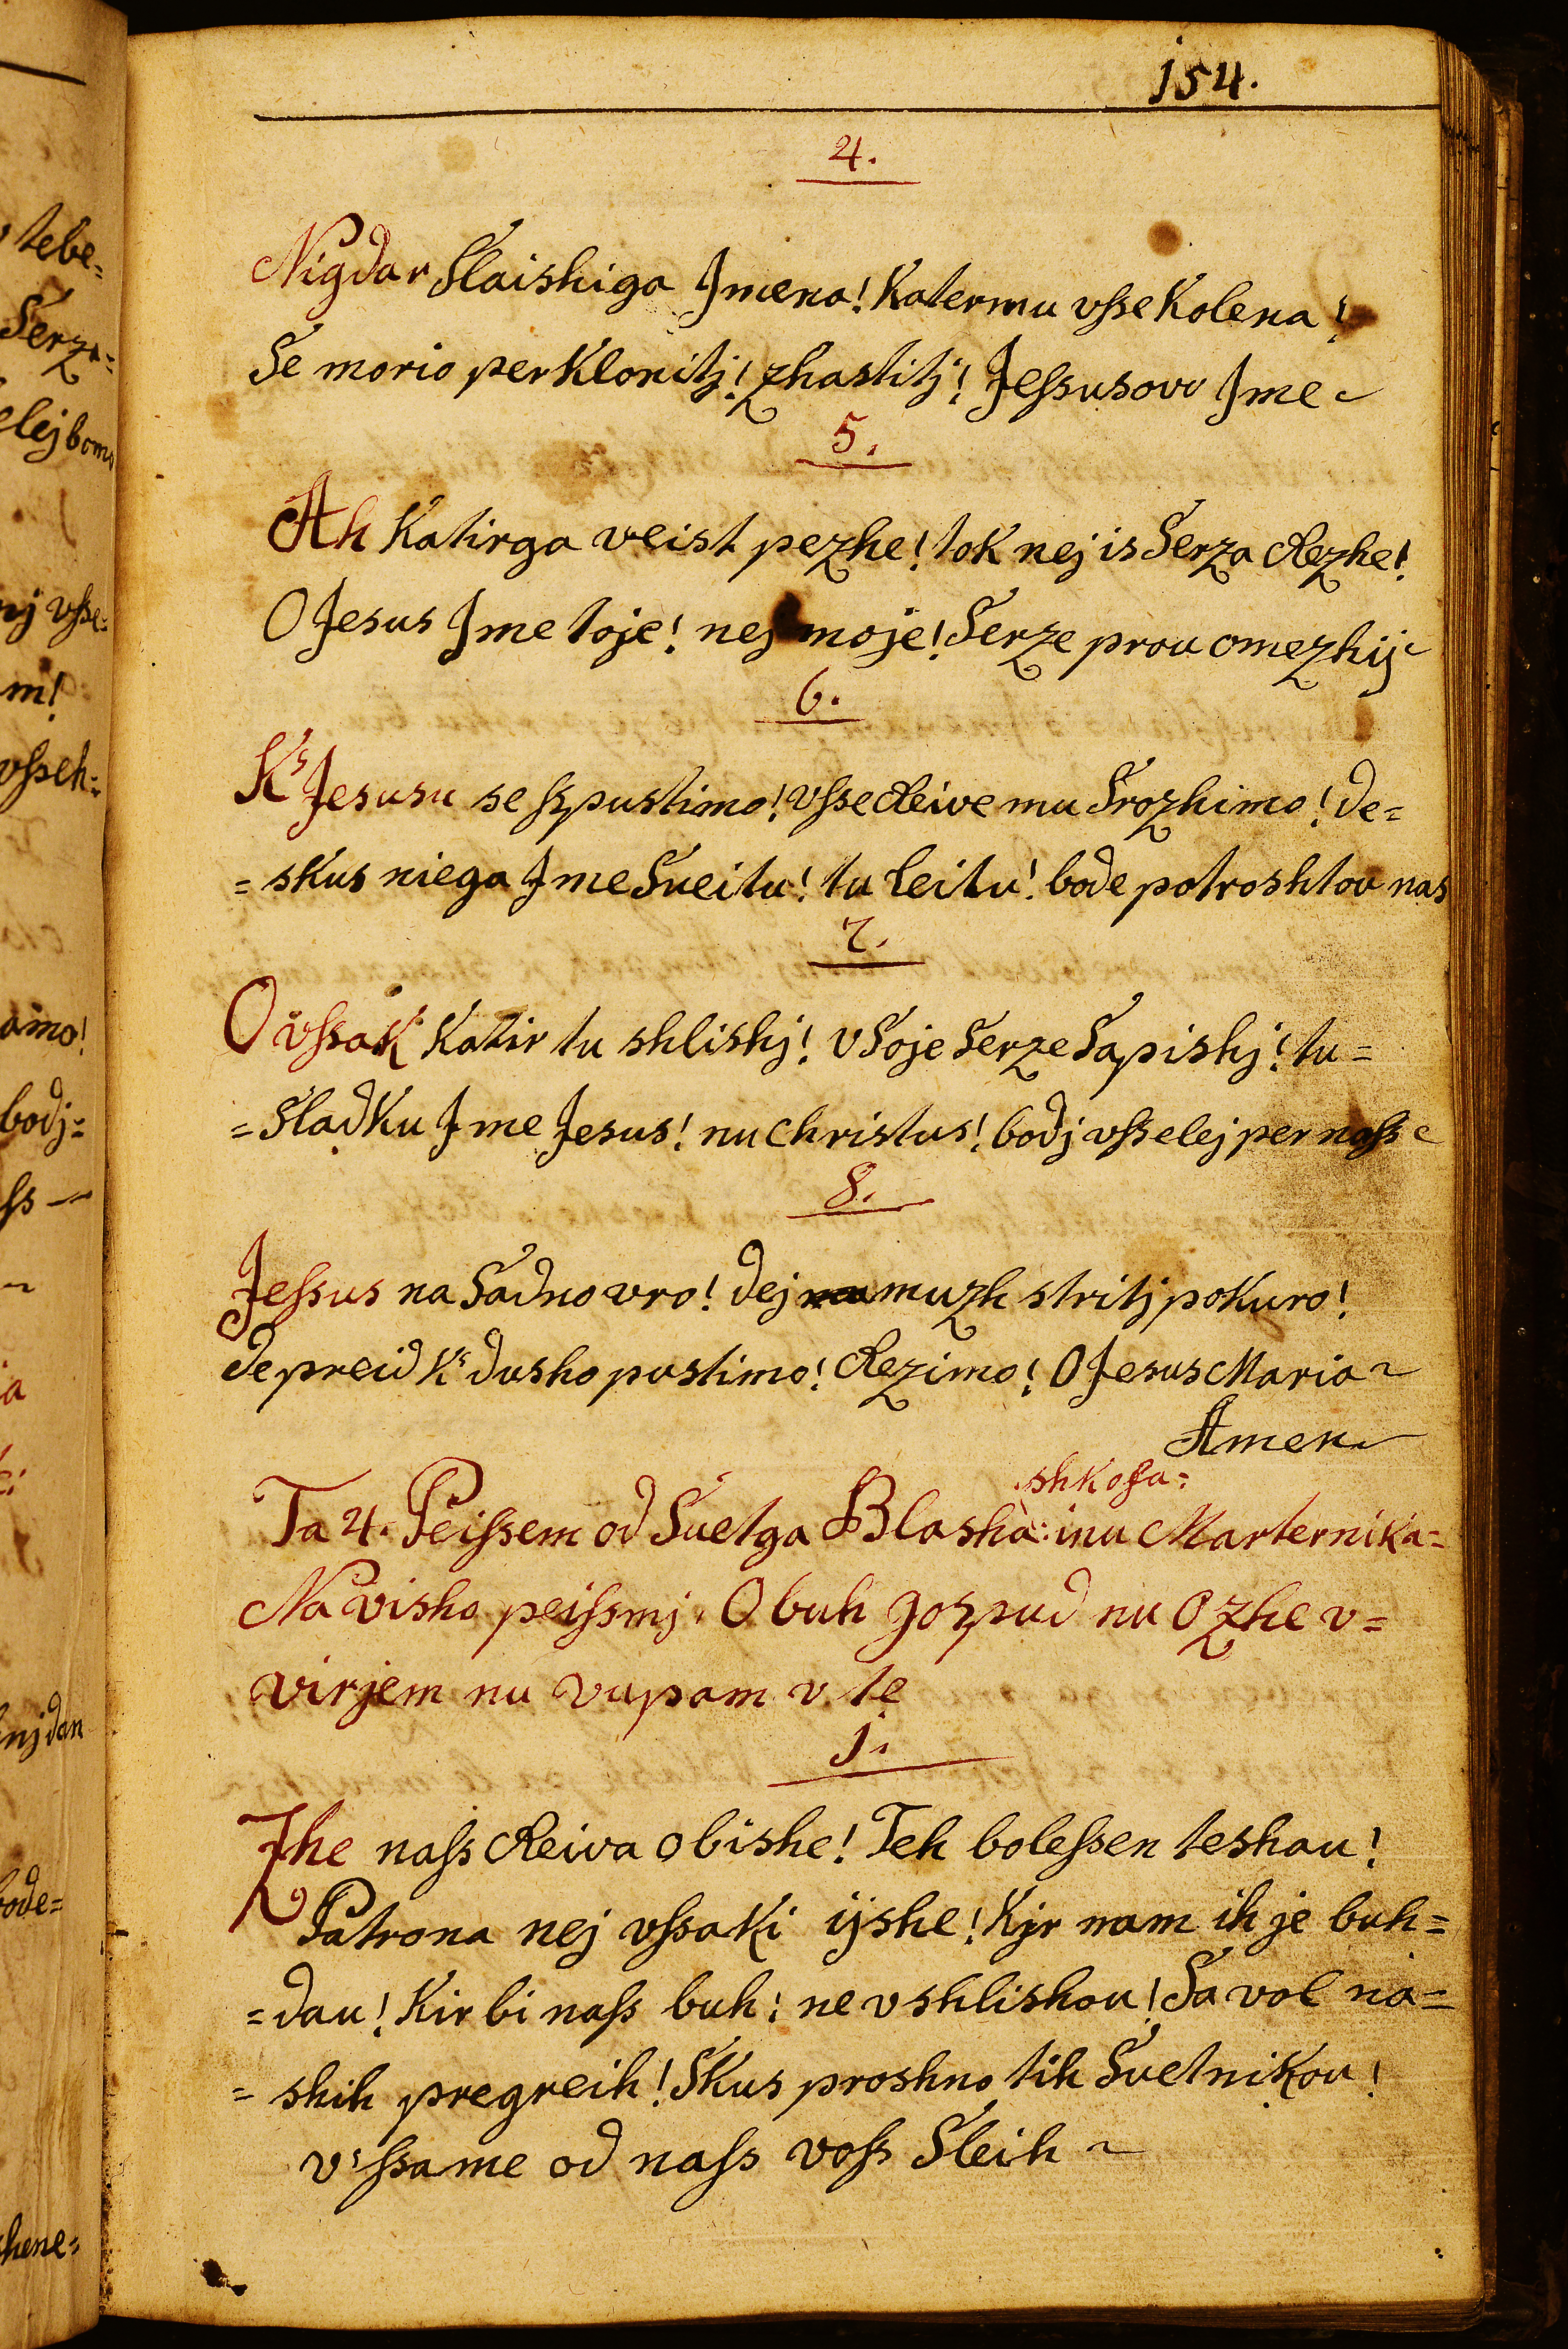 154.
4.
Nigdar Slaishiga Jmena! Katermu vsse Kolena!
Se morio perKlonitj! zhastitj! Jessusovo Jme
5.
Ah Katirga veist pezhe! tok nej is Serza Rezhe!
O Jesus Jme toje! nej moje! Serze prou omezhij
6.
K's Jesusu se sspustimo! vsse Reive mu Srozhimo! de=
=skus niega Jme Sveitu! tu leitu! bode potroshtou nas
7.
O vssaK Katir tu shlishj! v Soje Serze Sapishj! tu=
=SladKu Jme Jesus! nu Christus! bodj vsselej per nass
8.
Jessus na Sadno vro! dej muzh stritj poKuro!
de preid K's dusho pustimo! Rezimo! O Jesus Maria
Amen
shkofa=
Ta 4. Peissem od Svetga Blasha: inu MarterniKa=
Na visho peissmj. O buh gospud nu Ozhe v=
virjem nu vupam v te
1.
Zhe nass Reiva obishe! Teh bolessen teshau!
Patrona nej vssaKi ijshe! Kjr nam ih je buh=
=dau! Kir bi nass buh: ne vshlishou! Sa vol na=
=shih pregreih! SKus proshno tih SvetniKou!
v'ssame od nass voss Sleih
tebe=
Serza=
elej bomo
nj vsse=
m!
vsseh=
amo!
bodj=
ss
a
nj dan
bode=
hene=